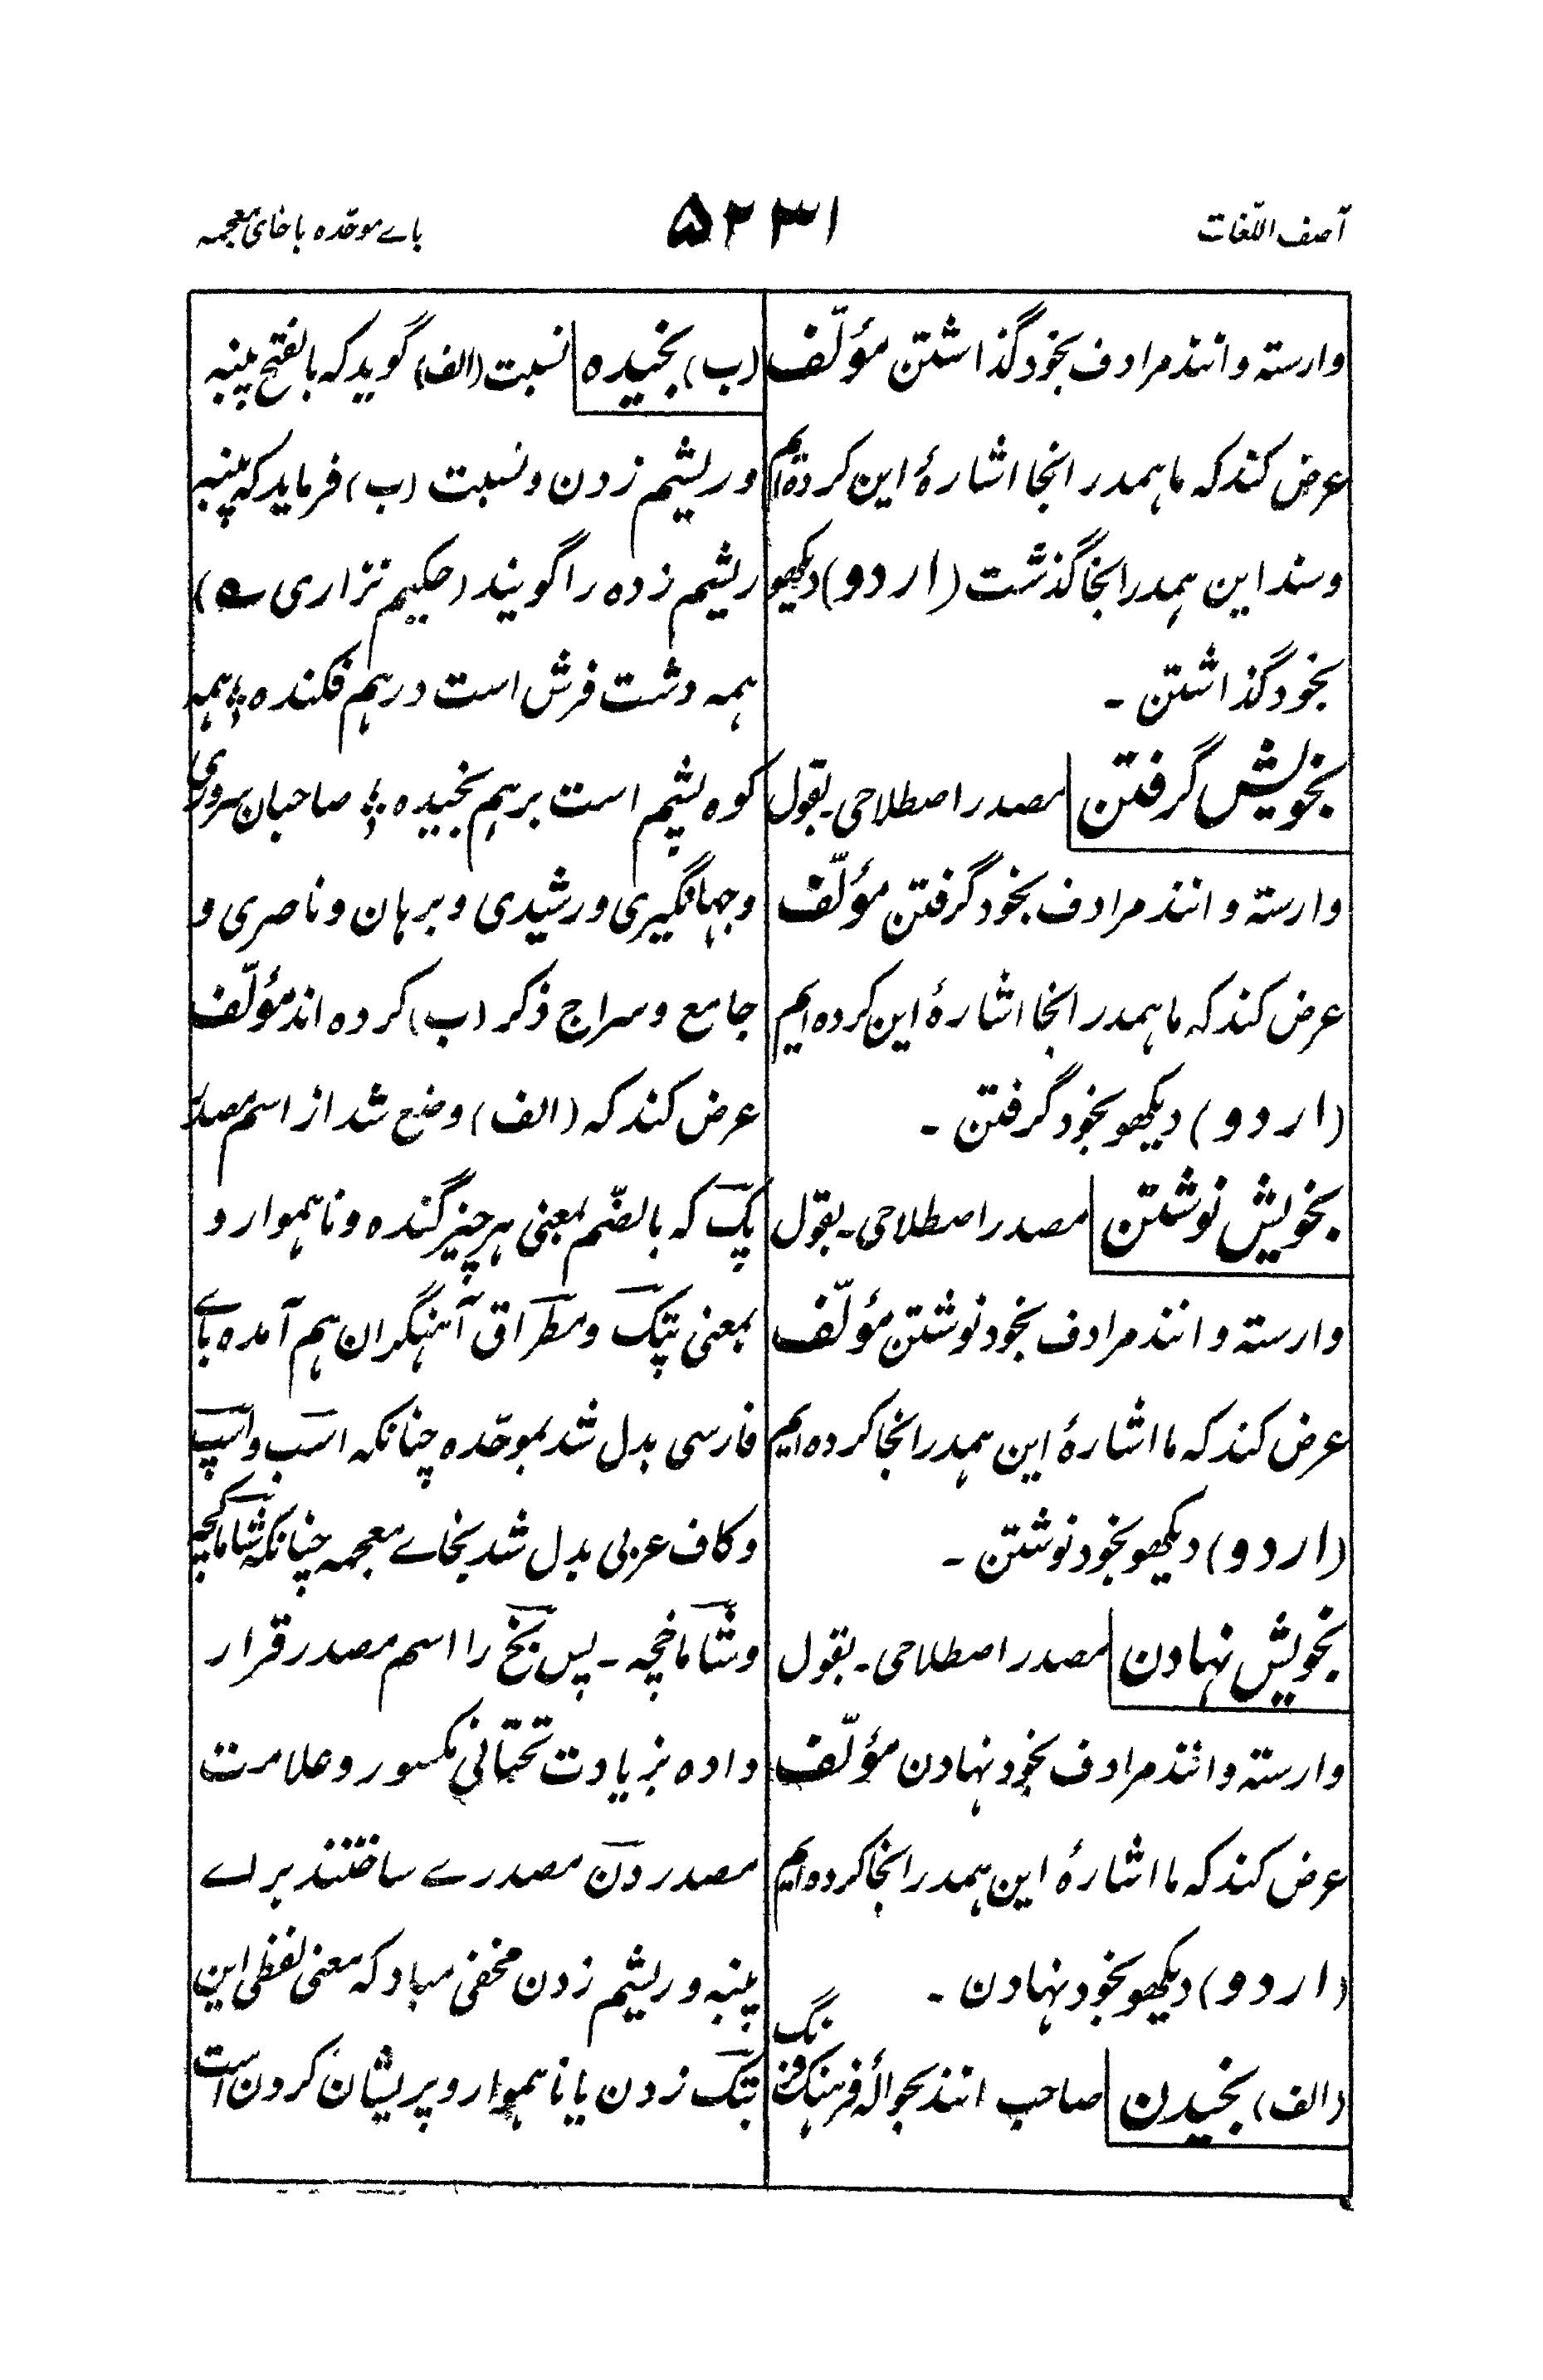 آصف اللغات
۵۲۳۱
باے موحّدہ با خای معجمہ
وارستہ و انند مرادف بخود گذاشتن مؤلّف
عرض کند کہ ما ہمدر انجا اشارۂ این کردہ ایم
و سند این ہمدر انجا گذشت (اردو) دیکھو
بخود گذاشتن ۔
بخویش گرفتن مصدر اصطلاحی ۔ بقول
وارستہ و انند مرادف بخود گرفتن مؤلّف
عرض کند کہ ما ہمدر انجا اشارۂ این کردہ ایم
(اردو) دیکھو بخود گرفتن ۔
بخویش نوشتن مصدر اصطلاحی ۔ بقول
وارستہ و انند مرادف بخود نوشتن مؤلّف
عرض کند کہ ما اشارۂ این ہمدر انجا کردہ ایم
(اردو) دیکھو بخود نوشتن ۔
بخویش نہادن مصدر اصطلاحی ۔ بقول
وارستہ و انند مرادف بخود نہادن مؤلّف
عرض کند کہ ما اشارۂ این ہمدر انجا کردہ ایم
(اردو) دیکھو بخود نہادن ۔
(الف) بخیدن صاحب انند بحوالۂ فرہنگ فرنگ
(ب) بخیدہ نسبت (الف) گوید کہ بالفتح پنبہ
و ریشم زدن و نسبت (ب) فرماید کہ پنبہ
ریشم زدہ را گویند (حکیم نزاری ؎)
ہمہ دشت فرش است درہم فکندہ ؛ ہمہ
کوہ پشم است برہم بخیدہ ؛ صاحبان سروری
و جہانگیری و رشیدی و برہان و ناصری و
جامع و سراج ذکر (ب) کردہ اند مؤلّف
عرض کند کہ (الف) وضع شد از اسم مصدر
پک کہ بالضّم بمعنی ہر چیز گندہ و ناہموار و
بمعنی پتک و مطراق آہنگران ہم آمدہ باے
فارسی بدل شد بموحّدہ چنانکہ اسب و اسپ
و کاف عربی بدل شد بخاے معجمہ چنانکہ شاماکچہ
و شاماخچہ ۔ پس بخ را اسم مصدر قرار
دادہ بزیادت تحتانی مکسور و علامت
مصدر دن مصدرے ساختند براے
پنبہ و ریشم زدن مخفی مباد کہ معنی لفظی این
پتک زدن یا ناہموار و پریشان کردن است